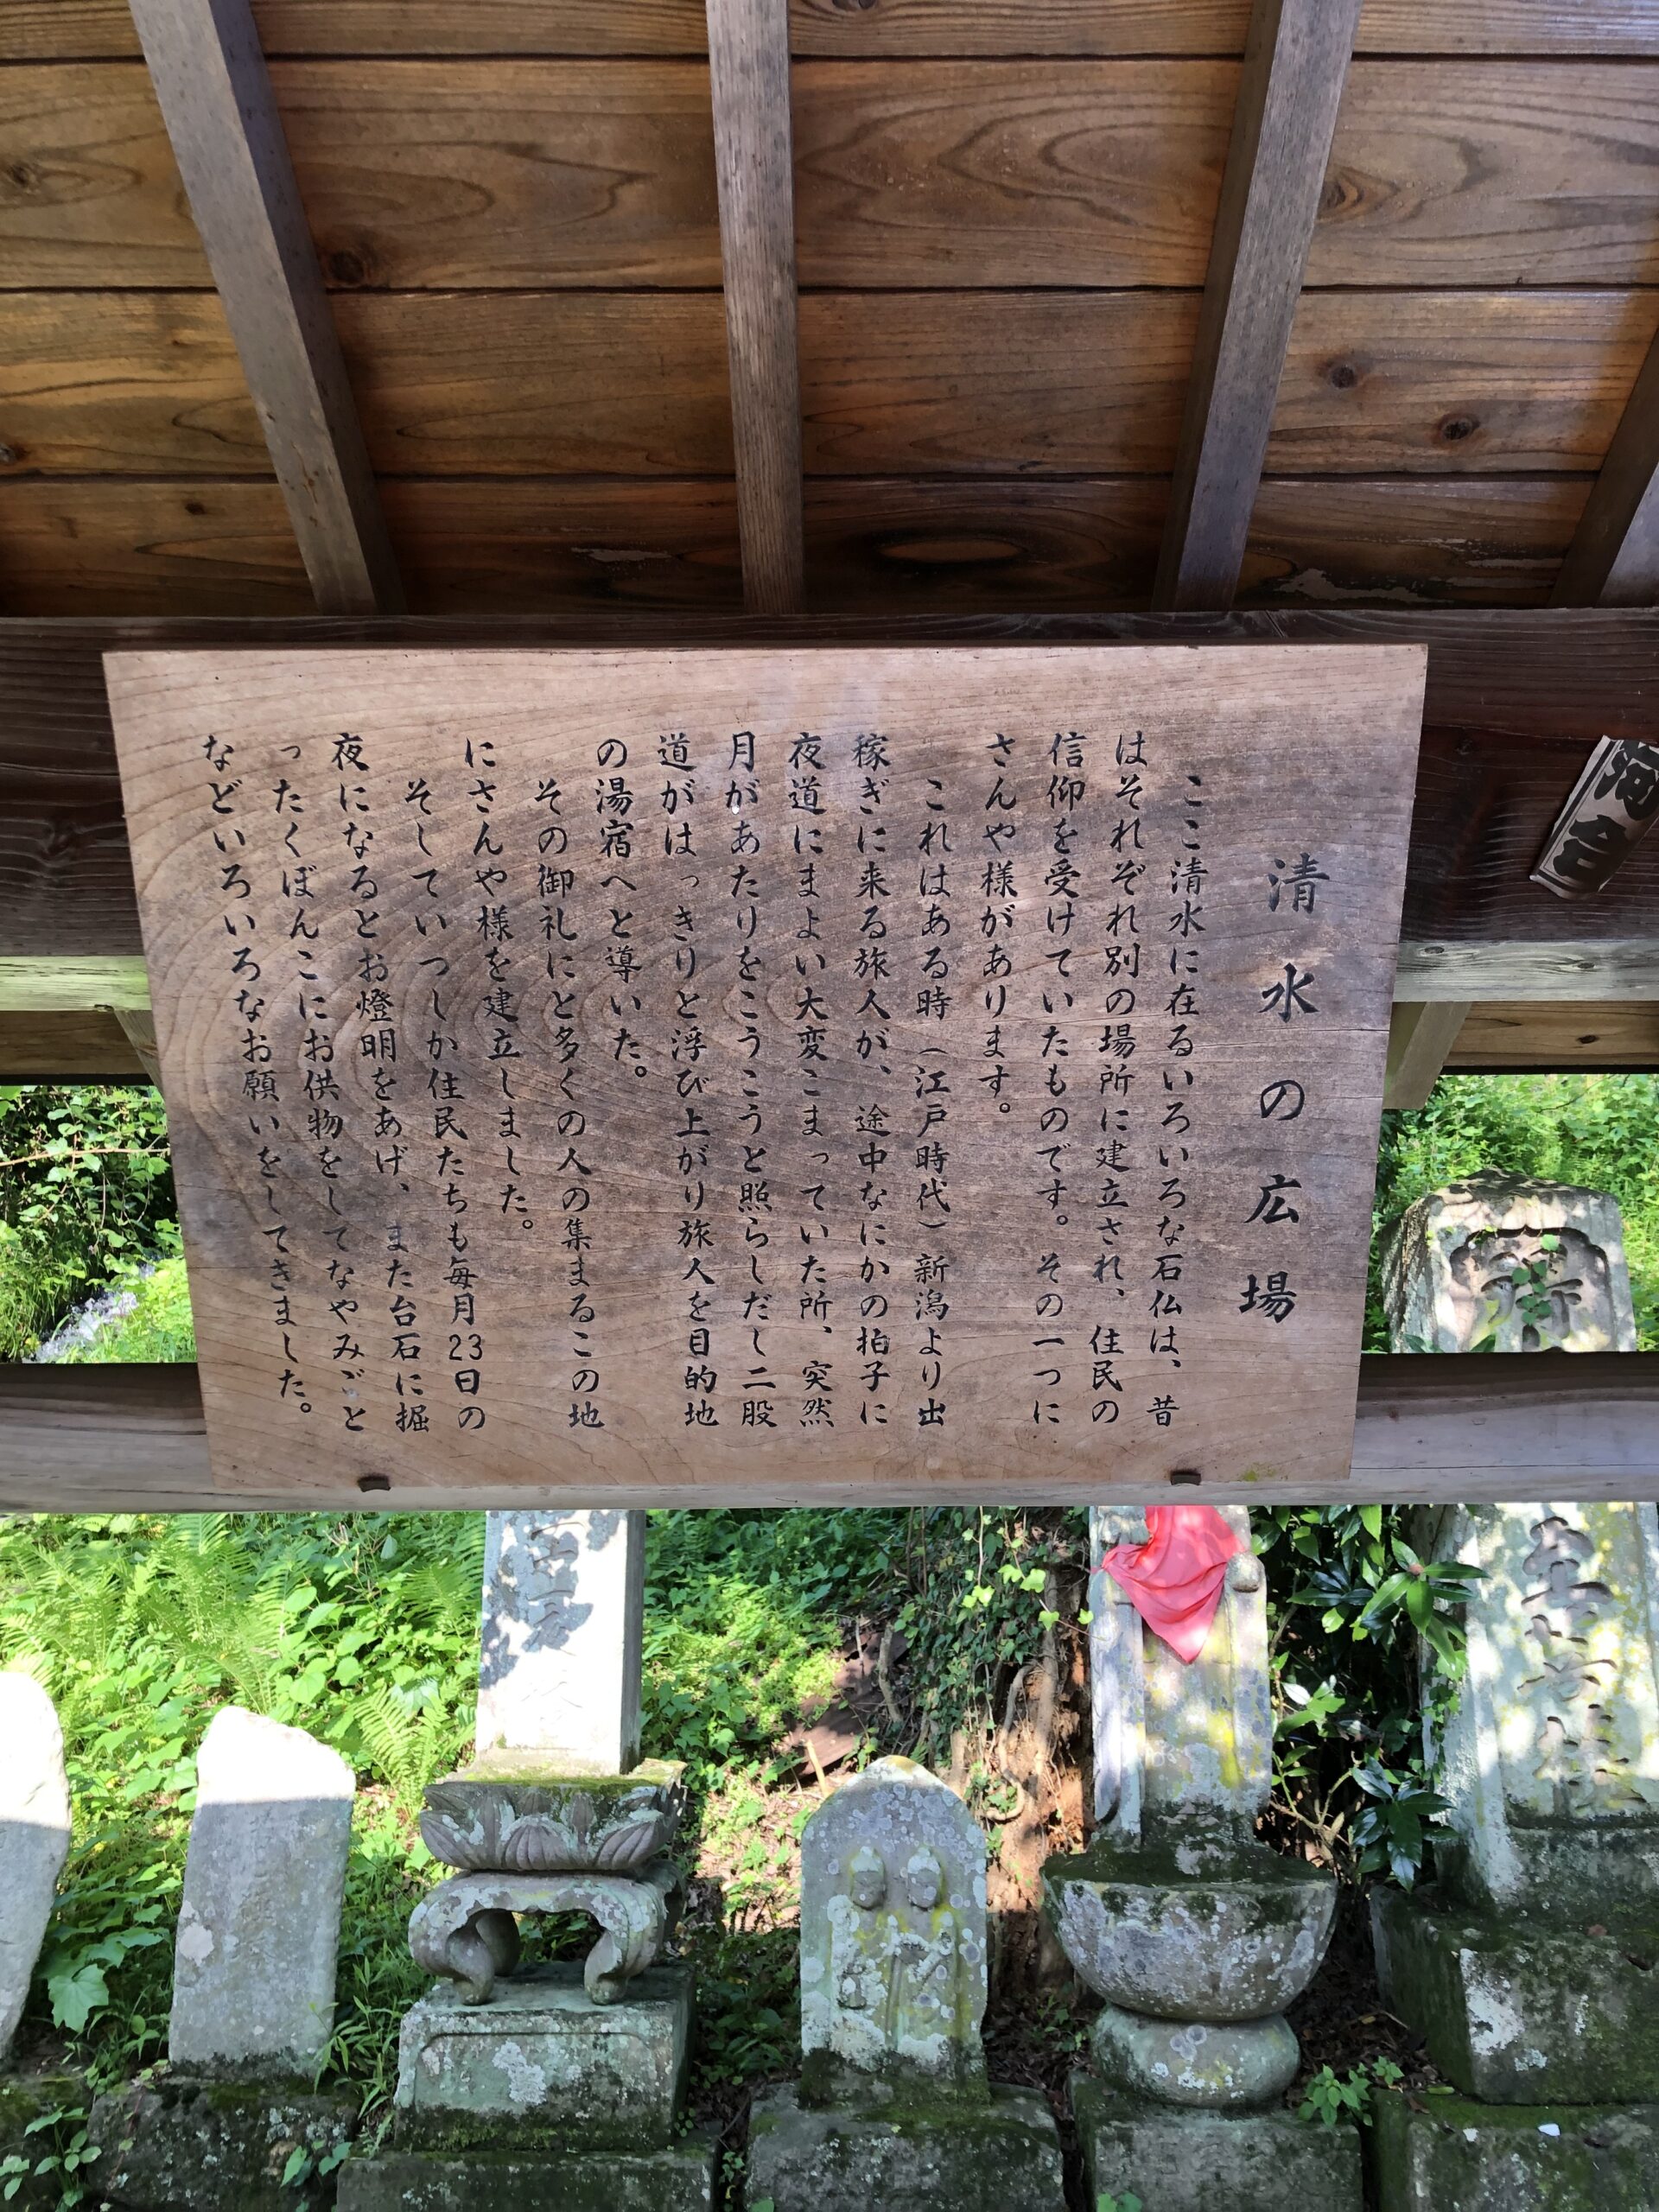 清水の広場
ここ清水に在るいろいろな石仏は、昔
はそれぞれ別の場所に建立され、住民の
信仰を受けていたものです。その一つに
さんや様があります。
これはある時（江戸時代）新潟より出
稼ぎに来る旅人が、途中なにかの拍子に
夜道にまよい大変こまっていた所、突然
月があたりをこうこうと照らしだし二股
道がはっきりと浮び上がり旅人を目的地
の湯宿へと導いた。
その御礼にと多くの人の集まるこの地
にさんや様を建立しました。
そしていつしか住民たちも毎月23日の
夜になるとお燈明をあげ、また台石に掘
ったくぼんこにお供物をしてなやみごと
などいろいろなお願いをしてきました。